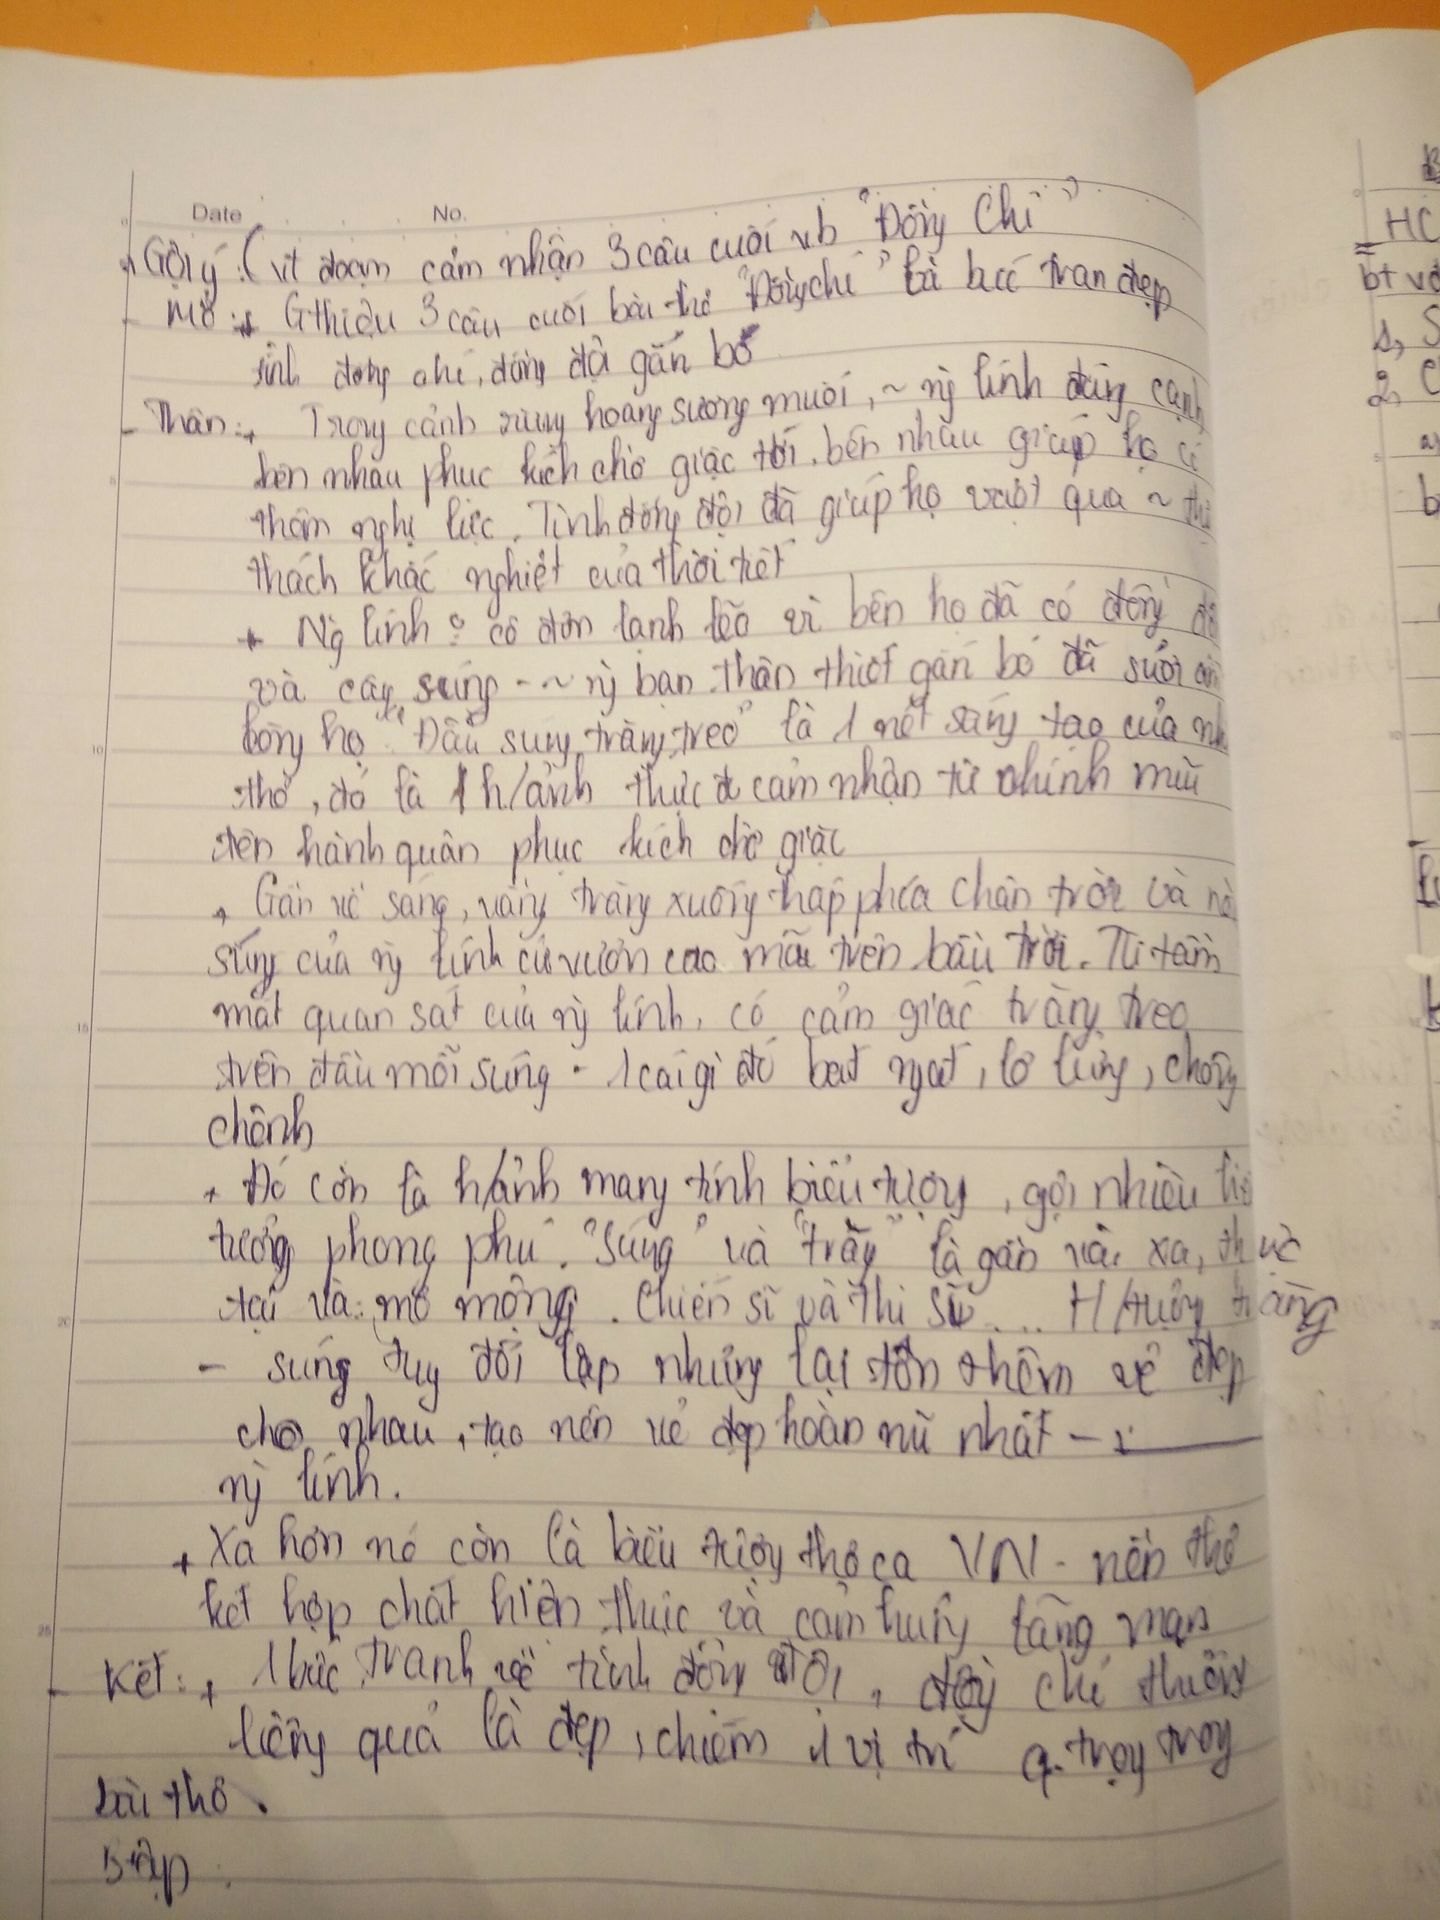 Date No.
Gợi ý: (vt đoạn cảm nhận 3 câu cuối vb "Đồng Chí")
- Mở: + Gthiệu 3 câu cuối bài thơ "Đồng chí" là bức tran đẹp
tình đồng chí, đồng đội gắn bó
- Thân: + Trong cảnh rừng hoang sương muối, ~ ng lính đứng cạnh
bên nhau phục kích chờ giặc tới. bên nhau giúp họ có
thêm nghị lực. Tình đồng đội đã giúp họ vượt qua ~ thử
thách khắc nghiệt của thời tiết
+ Ng lính cô đơn lạnh lẽo vì bên họ đã có đồng độ
và cây súng - ~ ng bạn thân thiết gắn bó đã sưởi
lòng họ. "Đầu súng trăng treo" là 1 nét sáng tạo của nh
thơ, đó là 1 h/ảnh thực đc cảm nhận từ chính
đên hành quân phục kích chờ giặc
+ Gần về sáng, vầng trăng xuống thấp phía chân trời và
súng của ng lính cứ vươn cao mãi trên bầu trời. Từ tầm
mắt quan sát của ng lính, có cảm giác trăng treo
trên đầu mỗi súng - 1 cái gì đó bát ngát, lơ lửng, chông
chênh
+ Đó còn là h/ảnh mang tính biểu tượng, gợi nhiều liê
tưởng phong phú. "Súng" và "trăng" là gần và xa, thực
tại và mơ mộng. Chiến sĩ và thi sĩ... H/tượng trăng
- súng tuy đối lập nhưng lại tôn thêm vẻ đẹp
cho nhau, tạo nên vẻ đẹp hoàn mĩ nhất -
ng lính.
+ Xa hơn nó còn là biểu tượng thơ ca VN - nền thơ
kết hợp chất hiện thực và cảm hứng lãng mạn
- Kết: + 1 bức tranh về tình đồng đội, đồng chí thiêng
liêng quả là đẹp, chiếm 1 vị trí q. trọng trong
bài thơ.
HC
bt
1,
2,